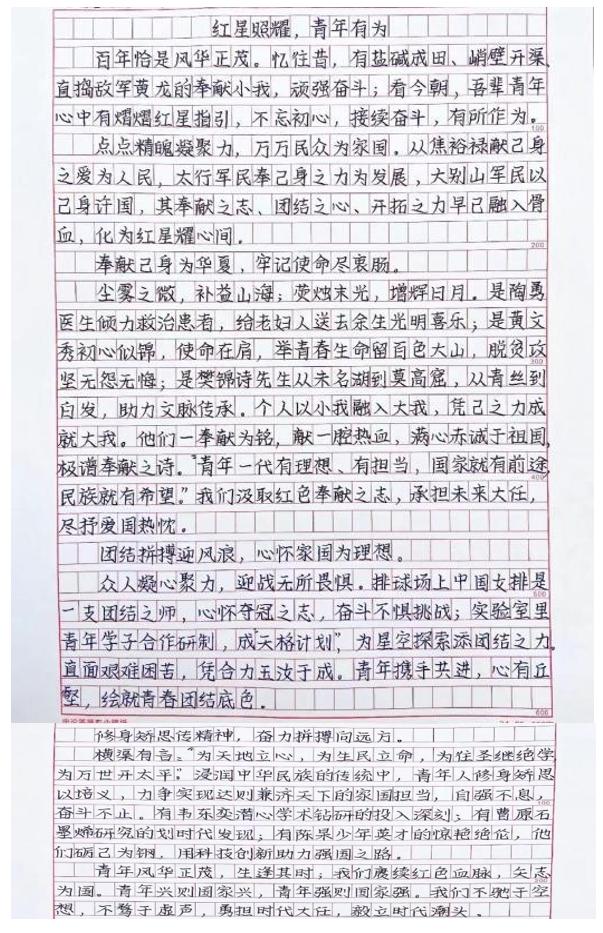 红星照耀，青年有为
百年恰是风华正茂。忆往昔，有盐碱成田、峭壁开渠、
直捣敌军黄龙的奉献小我，顽强奋斗；看今朝，吾辈青年
心中有熠熠红星指引，不忘初心，接续奋斗，有所作为。
100
点点精魄凝聚力，万万民众为家国。从焦裕禄献己身
之爱为人民，太行军民奉己身之力为发展，大别山军民以
己身许国，其奉献之志、团结之心、开拓之力早已融入骨
血，化为红星耀心间。
200
奉献己身为华夏，牢记使命尽衷肠。
尘雾之微，补益山海；荧烛末光，增辉日月。是陶勇
医生倾力救治患者，给老妇人送去余生光明喜乐；是黄文
秀初心似锦，使命在肩，举青春生命留百色大山，脱贫攻
300
坚无怨无悔；是樊锦诗先生从未名湖到莫高窟，从青丝到
白发，助力文脉传承。个人以小我融入大我，凭己之力成
就大我。他们一奉献为铭，献一腔热血，满心赤诚于祖国，
极谱奉献之诗。“青年一代有理想、有担当，国家就有前途，
400
民族就有希望。”我们汲取红色奉献之志，承担未来大任，
尽抒爱国热忱。
团结拼搏迎风浪，心怀家国为理想。
众人凝心聚力，迎战无所畏惧。排球场上中国女排是
500
一支团结之师，心怀夺冠之志，奋斗不惧挑战；实验室里
青年学子合作研制，成“天格计划”，为星空探索添团结之力。
直面艰难困苦，凭合力玉汝于成。青年携手共进，心有丘
壑，绘就青春团结底色。
600
修身矫思传精神，奋力拼搏向远方。
横渠有言：“为天地立心，为生民立命，为往圣继绝学，
为万世开太平”，浸润中华民族的传统中，青年人修身矫思
以培义，力争实现达则兼济天下的家国担当，自强不息，
100
奋斗不止。有韦东奕潜心学术钻研的投入深刻；有曹原石
墨烯研究的划时代发现；有陈杲少年英才的惊艳绝伦，他
们砺己为钢，用科技创新助力强国之路。
青年风华正茂，生逢其时；我们赓续红色血脉，矢志
为国。青年兴则国家兴，青年强则国家强。我们不驰于空
想，不骛于虚声，勇担时代大任，毅立时代潮头。